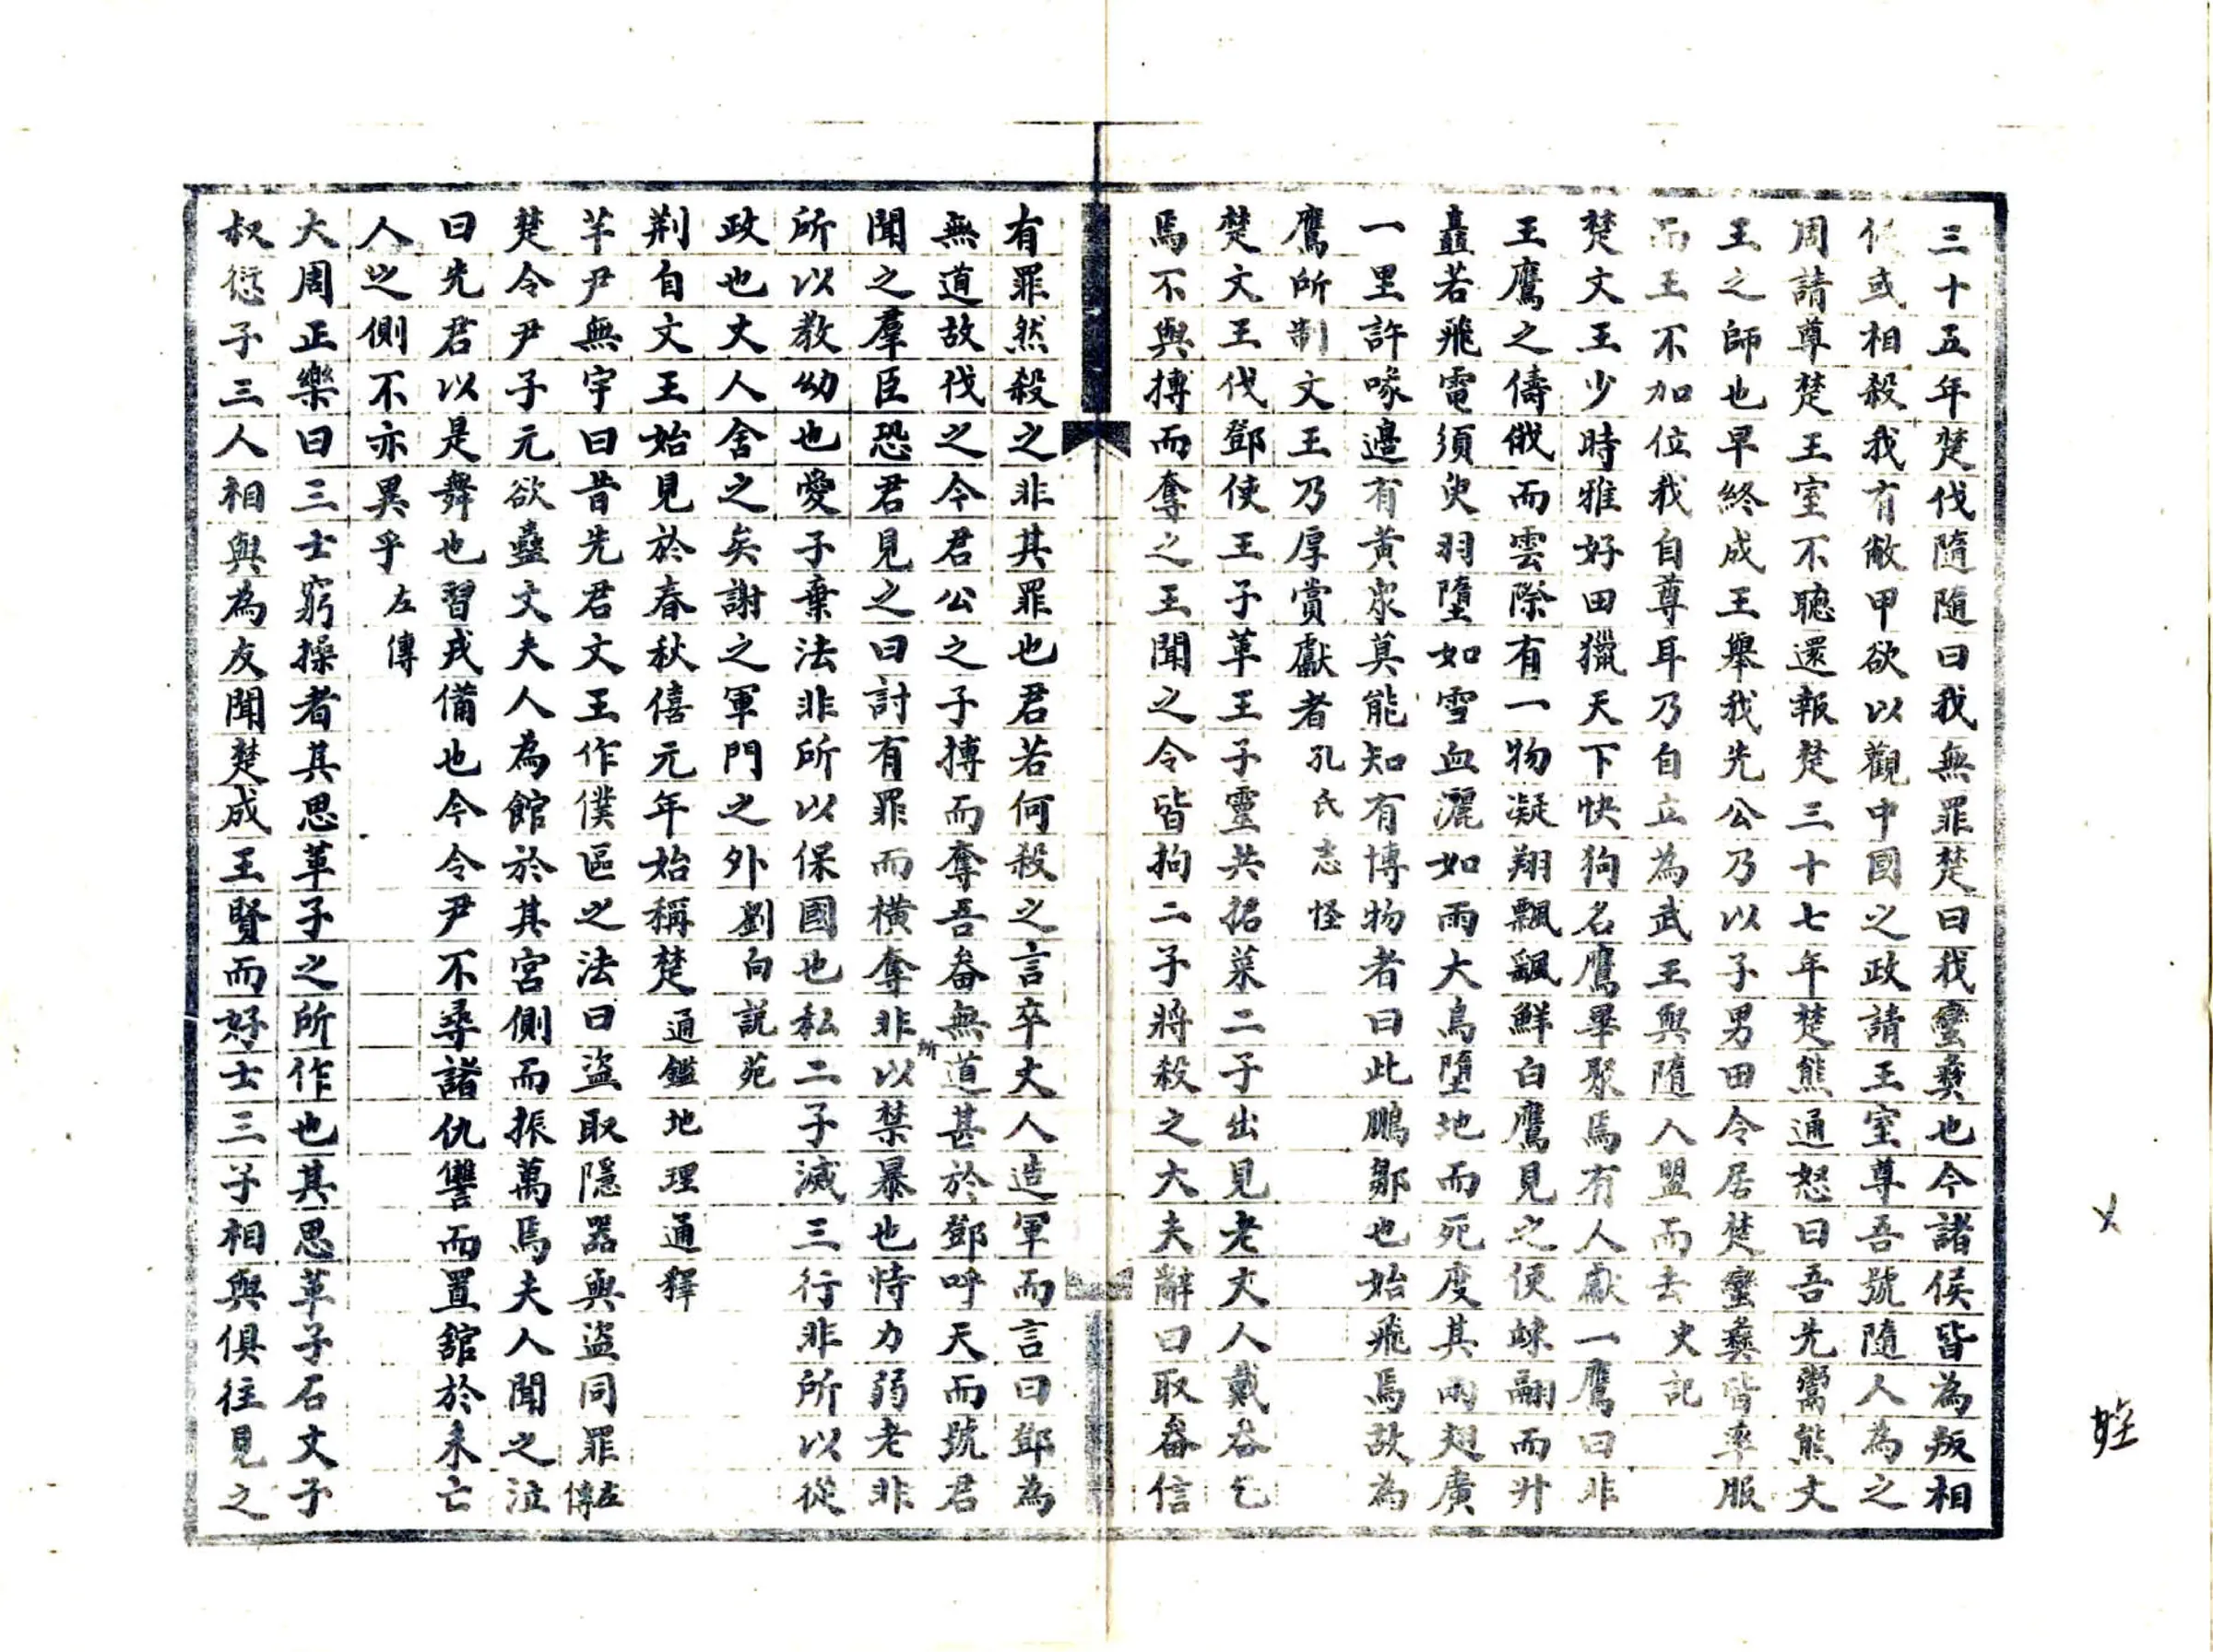 三十五年楚伐隨隨曰我無罪楚曰我蠻彝也今諸侯皆為叛相
侵或相殺我有敝甲欲以觀中國之政請王室尊吾號隨人為之
周請尊楚王室不聽還報楚三十七年楚熊通怒曰吾先鬻熊文
王之師也早終成王舉我先公乃以子男田令居楚蠻彝皆率服
而王不加位我自尊耳乃自立為武王與隨人盟而去史記
楚文王少時雅好田獵天下快狗名鷹畢聚焉有人獻一鷹曰非
王鷹之儔俄而雲際有一物凝翔飄颻鮮白鷹見之便竦翮而升
矗若飛電須臾羽墮如雪血灑如雨有大鳥墮地而死度其兩翅廣
一里許喙邊有黃衆莫能知有博物者曰此鵬鶵也始飛焉故為
鷹所制文王乃厚賞獻者孔氏志怪
楚文王伐鄧使王子革王子靈共捃菜二子出見老丈人戴畚乞
焉不與搏而奪之王聞之令皆拘二子將殺之大夫辭曰取畚信
有罪然殺之非其罪也君若何殺之言卒丈人造軍而言曰鄧為
無道故伐之今君公之子搏而奪吾畚無道甚於鄧呼天而號君
聞之羣臣恐君見之曰討有罪而橫奪非所以禁暴也恃力弱老非
所以教幼也愛子棄法非所以保國也私二子滅三行非所以從
政也丈人舍之矣謝之軍門之外劉向說苑
荆自文王始見於春秋僖元年始稱楚通鑑地理通釋
芊尹無宇曰昔先君文王作僕區之法曰盜取隱器與盜同罪左傳
楚令尹子元欲蠱文夫人為館於其宮側而振萬焉夫人聞之泣
曰先君以是舞也習戎備也今令尹不尋諸仇讐而置舘於未亡
人之側不亦異乎左傳
大周正樂曰三士窮操者其思革子之所作也其思革子石文子
叔愆子三人相與為友聞楚成王賢而好士三子相與俱往見之